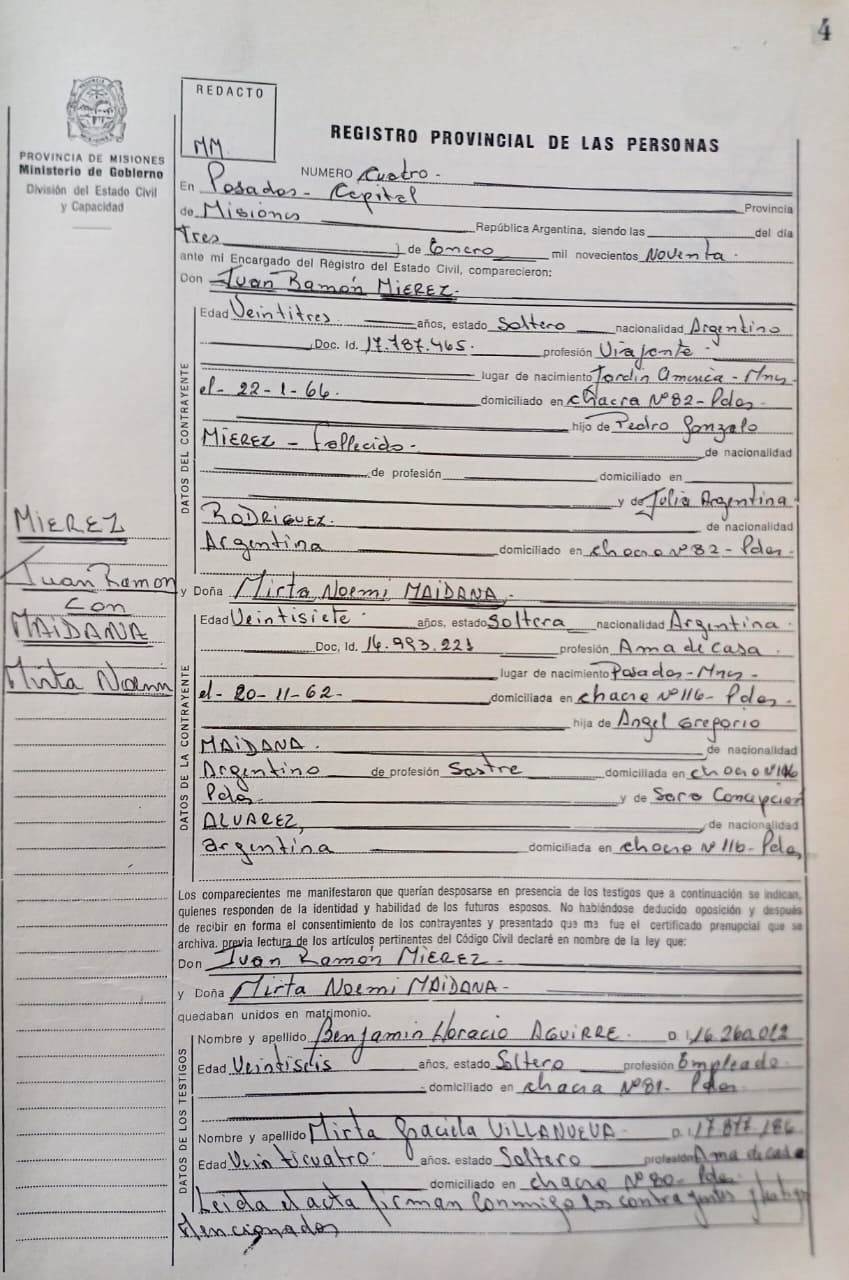 4
REDACTO
MM
PROVINCIA DE MISIONES
Ministerio de Gobierno
División del Estado Civil
y Capacidad
REGISTRO PROVINCIAL DE LAS PERSONAS
NUMERO Cuatro -
En Posadas - Capital Provincia
de Misiones República Argentina, siendo las del día
Tres de Enero mil novecientos Noventa -
ante mi Encargado del Registro del Estado Civil, comparecieron:
Don Juan Ramón MIEREZ-
DATOS DEL CONTRAYENTE
Edad Veintitres años, estado Soltero nacionalidad Argentino
Doc. Id. 17.787.465- profesión Viajante
lugar de nacimiento Jardin America - Mnes-
el - 22-1-66- domiciliado en chacra Nº 82 - Pdas-
hijo de Pedro Gonzalo
MIEREZ - fallecido - de nacionalidad
de profesión domiciliado en
y de Julia Argentina
RODRIGUEZ. de nacionalidad
Argentina domiciliado en chacra nº 82 - Pdas-
y Doña Mirta Noemi MAIDANA-
MIEREZ
Juan Ramon
Con
MAIDANA
Mirta Noemi
DATOS DE LA CONTRAYENTE
Edad Veintisiete - años, estado Soltera nacionalidad Argentina -
Doc, Id. 16.993.221 profesión Ama de casa
lugar de nacimiento Posadas - Mnes -
el - 20-11-62- domiciliada en chacra Nº 116 - Pdas -
hija de Angel Gregorio
MAIDANA. de nacionalidad
Argentino de profesión Sastre domiciliada en chacra Nº 116
Pdas- y de Sara Concepcion
ALVAREZ, de nacionalidad
argentina domiciliada en chacra Nº 116 - Pdas
Los comparecientes me manifestaron que querían desposarse en presencia de los testigos que a continuación se indican,
quienes responden de la identidad y habilidad de los futuros esposos. No habiéndose deducido oposición y después
de recibir en forma el consentimiento de los contrayentes y presentado que me fue el certificado prenupcial que se
archiva. previa lectura de los artículos pertinentes del Código Civil declaré en nombre de la ley que:
Don Juan Ramón MIEREZ -
y Doña Mirta Noemi MAIDANA -
quedaban unidos en matrimonio.
DATOS DE LOS TESTIGOS
Nombre y apellido Benjamin Horacio AGUIRRE - D I. 16.260.012
Edad Veintiseis años, estado Soltero profesión Empleado-
domiciliado en chacra Nº 81 - Pdas-
Nombre y apellido Mirta Graciela VILLANUEVA - D I. 17.877.186
Edad Veinticuatro - años. estado Soltero profesión Ama de casa
domiciliado en chacra Nº 80 - Pdas-
Leida el acta firman Conmigo los contrayentes y testigos
Mencionados